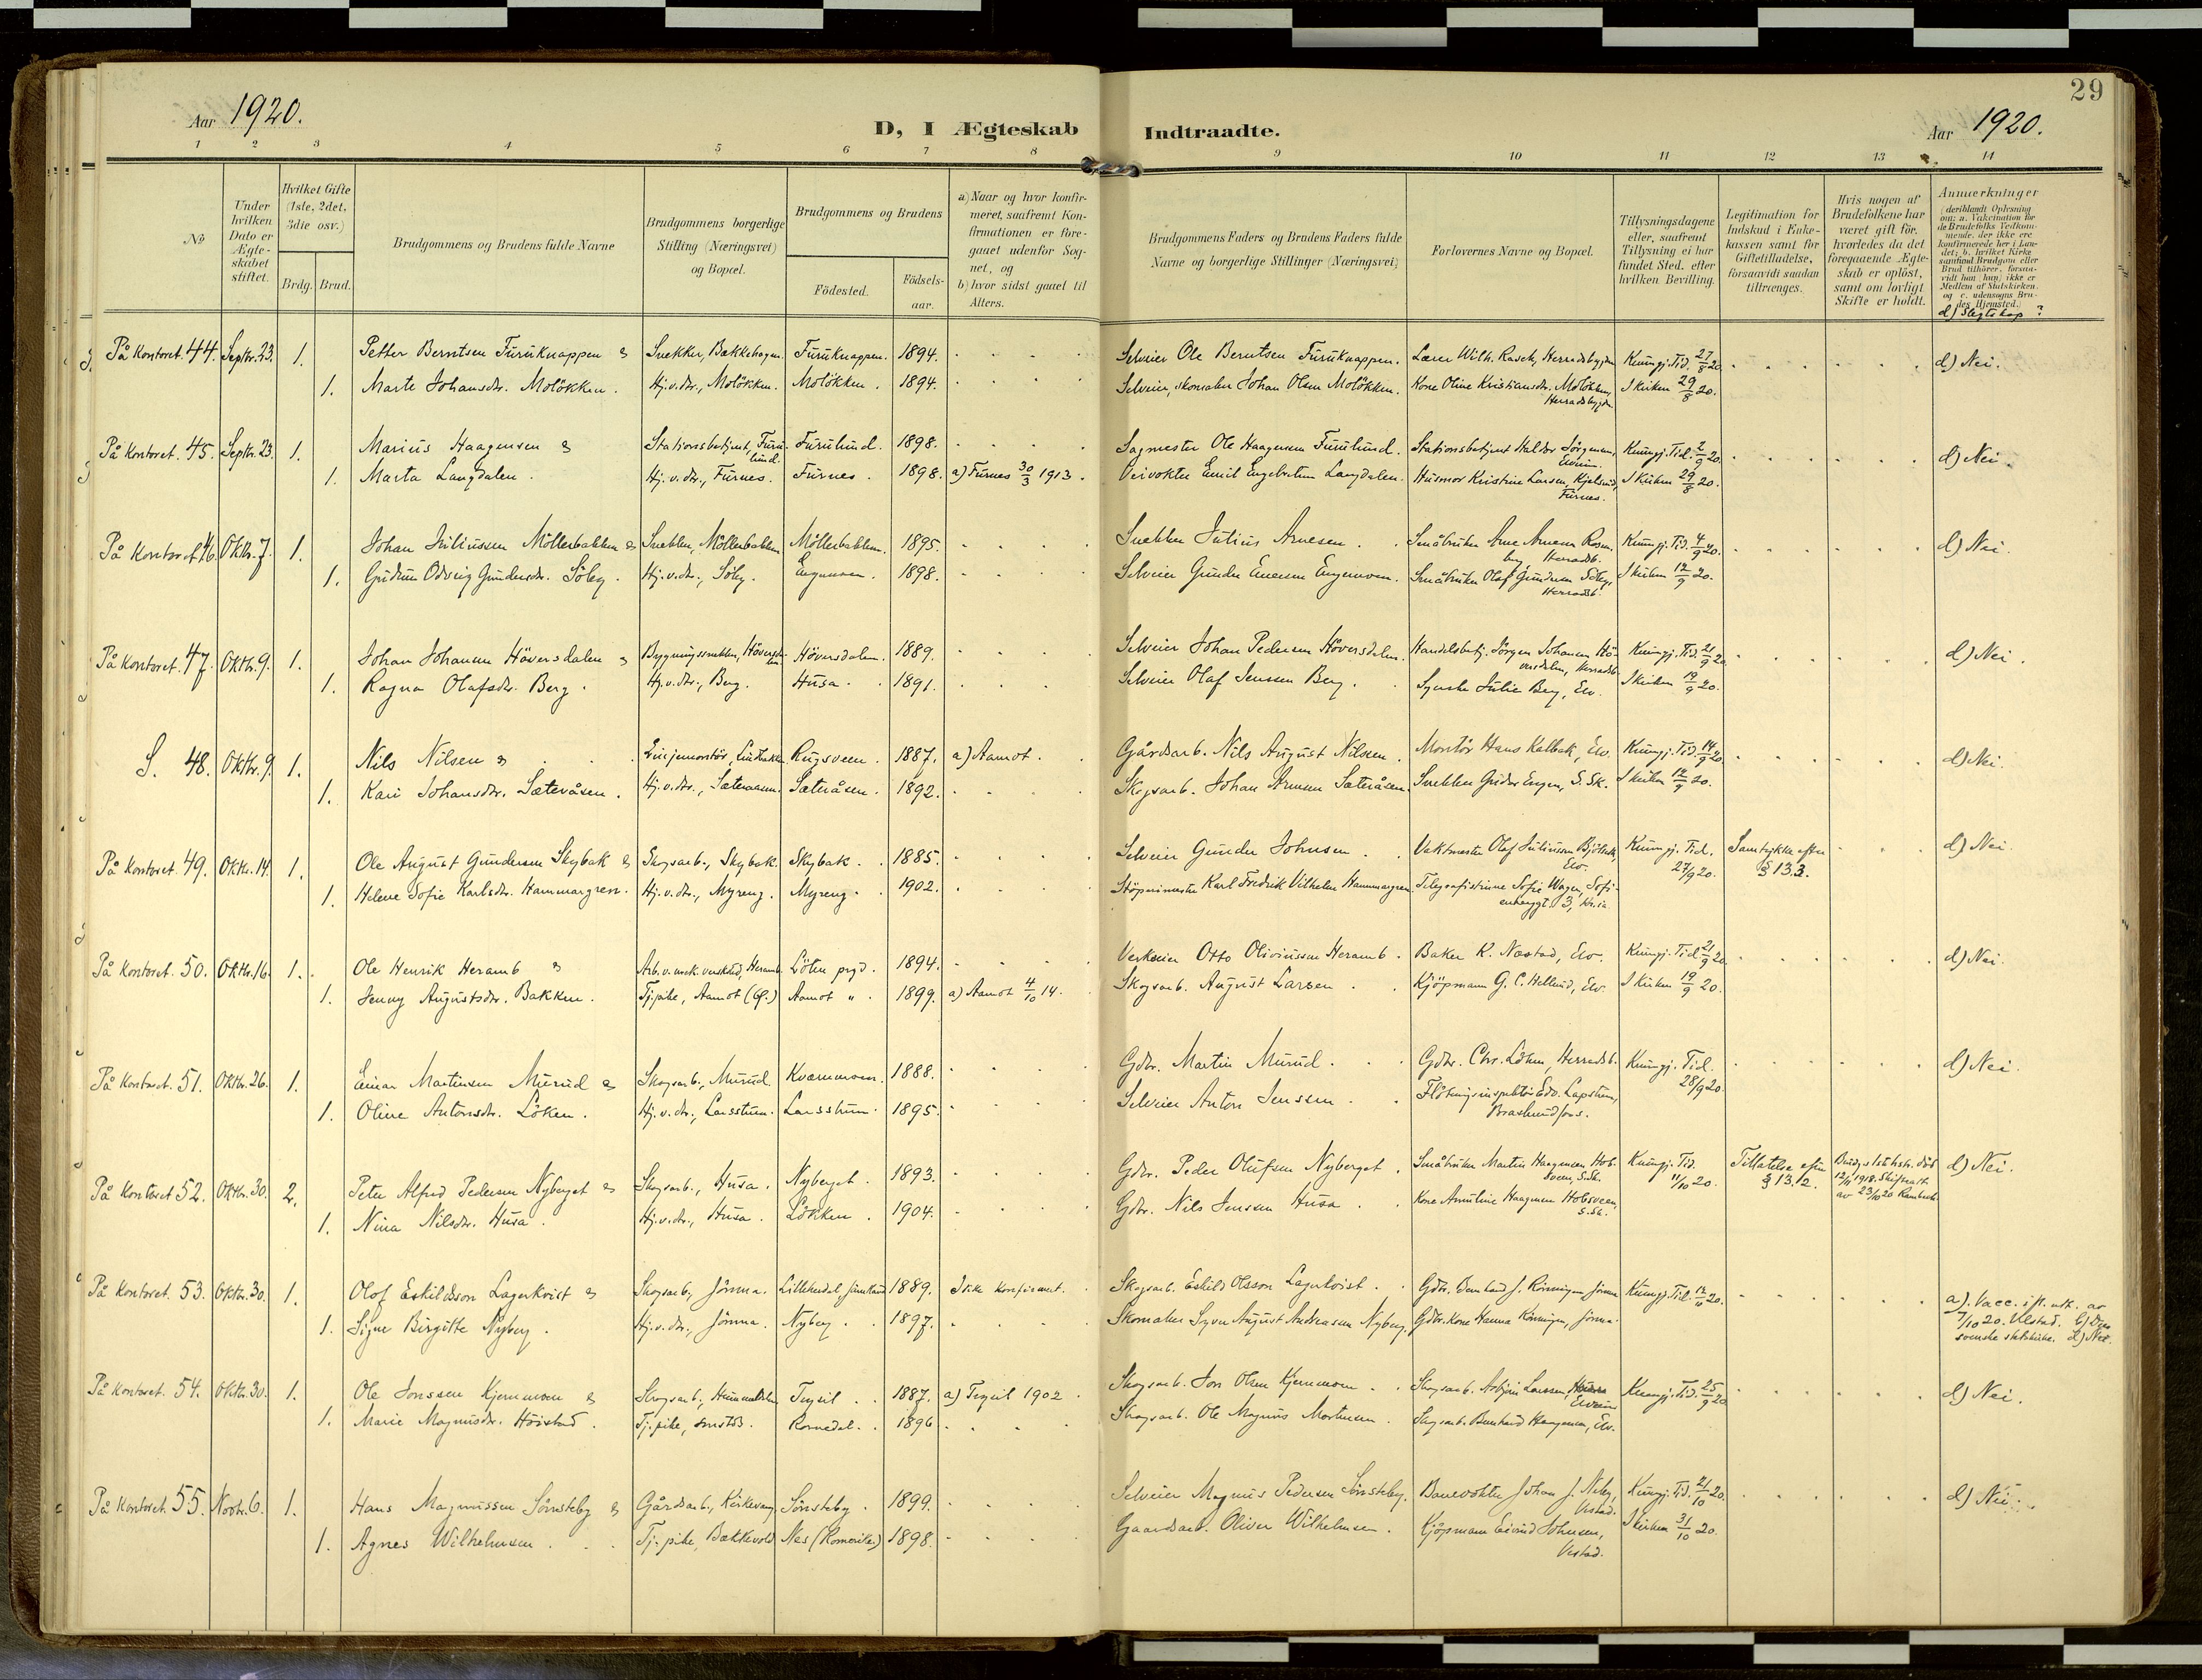 29
Aar 1920.
D, I Ægteskab Indtraadte.
Aar 1920.
1 2 3 4 5 6 7 8 9 10 11 12 13 14
No
Under hvilken Dato er Ægteskabet stiftet.
Hvilket Gifte (1ste, 2det, 3die osv.)
Brdg. Brud.
Brudgommens og Brudens fulde Navne
Brudgommens borgerlige Stilling (Næringsvei) og Bopæl.
Brudgommens og Brudens
Födested.
Födselsaar.
a) Naar og hvor konfirmeret, saafremt Konfirmationen er foregaaet udenfor Sognet, og
b) hvor sidst gaaet til Alters.
Brudgommens Faders og Brudens Faders fulde Navne og borgerlige Stillinger (Næringsvei)
Forlovernes Navne og Bopæl.
Tillysningsdagene eller, saafremt Tillysning ei har fundet Sted, efter hvilken Bevilling.
Legitimation for Indskud i Enkekassen samt for Giftetilladelse, forsaavidt saadan tiltrænges.
Hvis nogen af Brudefolkene har været gift för, hvorledes da det foregaaende Ægteskab er oplöst, samt om lovligt Skifte er holdt.
Anmerkninger
d) Slegtskap?
På kontoret. 44. Septbr. 23. 1. Petter Berntsen Furuknappen & Snekker, Bækkehagen. Furuknappen. 1894. Selveier Ole Berntsen Furuknappen. Lærer Wilh. Rasch, Herradsbygden Kunngj. Tid. 27/8 20. d) Nei.
1. Marte Johansdr. Molökken. Hj.v.dr., Molökken. Molökken. 1894. Selveier, skomaker Johan Olsen Molökken. Kone Oline Kristiansdr. Molökken, Herradsbygden. I kirken 29/8 20.
På kontoret. 45. Septbr. 23. 1. Marius Haagensen & Stationsbetjent, Furulund. Furulund. 1898. Sagmester Ole Haagensen Furulund. Stationsbetjent Haldor Jörgensen, Elverum. Kunngj. Tid. 2/9 20. d) Nei.
1. Marta Langdalen. Hj.v.dr., Furnes. Furnes. 1898. a) Furnes 30/3 1913. Veivokter Emil Engebretsen Langdalen. Husmor Kristine Larsen, Kjelsrud, Furnes. I kirken 29/8 20.
På kontoret 46. Oktbr. 7. 1. Johan Juliussen Möllerbakken & Snekker, Möllerbakken Möllerbakken. 1895. Snekker Julius Arnesen. Småbruker Arne Arnesen Rosenberg, Herradsb. Kunngj. Tid. 4/9 20. d) Nei.
1. Gudrun Odveig Gundersdr. Söby. Hj.v.dr., Söby. Engmoen. 1898. Selveier Gunder Emersen Engermoen. Småbruker Olaf Gundersen Söby, Herradsb. I kirken 12/9 20.
På kontoret. 47. Oktbr. 9. 1. Johan Johansen Höversdalen & Bygningssnekker, Höversdalen Höversdalen. 1889. Selveier Johan Pedersen Höversdalen. Handelsbetj. Jörgen Johansen Höversdalen, Herradsb. Kunngj. Tid. 21/9 20. d) Nei.
1. Ragna Olafsdr. Berg. Hj.v.dr., Berg. Husa. 1891. Selveier Olaf Jenssen Berg. Syerske Julie Berg, Elv. I kirken 19/9 20.
S. 48. Oktbr. 9. 1. Nils Nilsen & Linjemontör, Lindbakken Rugsveen. 1887. a) Aamot. Gårdsarb. Nils August Nilsen. Montör Hans Kalbak, Elv. Kunngj. Tid. 14/9 20. d) Nei.
1. Kari Johansdr. Sæteråsen. Hj.v.dr., Sæteraasen. Sæteråsen. 1892. Skogsarb. Johan Arnesen Sæteråsen. Snekker Gudor Engen, S. Sk. I kirken 12/9 20.
På kontoret. 49. Oktbr. 14. 1. Ole August Gundersen Skybak & Skogsarb., Skybak. Skybak. 1885. Selveier Gunder Johnsen. Vaktmester Olaf Juliussen Björkli, Elv. Kunngj. Tid. 27/9 20. Samtykke efter § 13.3. d) Nei.
1. Helene Sofie Karlsdr. Hammargren. Hj.v.dr., Myreng. Myreng. 1902. Stöperimester Karl Fredrik Vilhelm Hammargren Telegrafistinne Sofie Wagen, Sofienberggt. 3, Kr.ia.
På kontoret. 50. Oktbr. 16. 1. Ole Henrik Heramb & Arb. v. mek. verksted, Heramb. Löten prgd. 1894. Verkeier Otto Oliviussen Heramb. Baker K. Næstad, Elv. Kunngj. Tid 21/9 20. d) Nei.
1. Jenny Augustsdr. Bakken. Tj.pike, Aamot (Gl.) Aamot " 1899. a) Aamot 4/10 14. Skogsarb. August Larsen. Kjöpmann G. C. Hellund, Elv. I kirken 19/9 20.
På kontoret. 51. Oktbr. 26. 1. Einar Martinsen Murud & Skogsarb., Murud. Kvæmmoen. 1888. Gdbr. Martin Murud. Gdbr. Chr. Löken, Herradsb. Kunngj. Tid. 28/9 20. d) Nei.
1. Oline Antonsdr. Löken. Hj.v.dr., Larsstuen. Larsstuen. 1895. Selveier Anton Jenssen. Flötningsinspektör Edv. Lapstuen, Braskereidfoss.
På kontoret 52. Oktbr. 30. 2. Peter Alfred Pedersen Nyberget & Skogsarb., Husa. Nyberget. 1893. Gdbr. Peder Olufsen Nyberget. Småbruker Martin Haagensen Hobsveen, S.Sk. Kunngj. Tid. 11/10 20. Tillatelse efter § 13.2. Brudgs 1ste hstr. död 12/11 1918. Skifteatt. av 23/10 20 d) Nei.
1. Nina Nilsdr. Husa. Hj.v.dr., Husa. Lökken. 1904. Gdbr. Nils Jenssen Husa. Kone Annuline Haagensen Hobsveen, S.Sk.
På kontoret. 53. Oktbr. 30. 1. Olof Eskildsson Lagerkvist & Skogsarb., Jömna. Lillherdal, Jämtland 1889. Ikke konfirmert. Skogsarb. Eskild Olsson Lagerkvist. Gdbr. Bernhard J. Rönningen Jömna Kunngj. Tid. 12/10 20. a). Vacc. ifl. att. av 7/10 20. Ulstad. b) Den svenske statskirke. d) Nei.
1. Signe Birgitte Nyberg. Hj.v.dr., Jömna. Nyberg. 1897. Skomaker Syver August Andreasen Nyberg. Gdbr.kone Hanna Rönningen, Jömna.
På kontoret. 54. Oktbr. 30. 1. Ole Jonssen Kjernmoen & Skogsarb., Trysil. 1887. a) Trysil 1902. Skogsarb. Jon Olsen Kjernmoen. Skogsarb. Asbjörn Larssen, Elverum Kunngj. Tid. 25/9 20. d) Nei.
1. Marie Magnusdr. Höistad. Tj.pike, smsteds. Romedal. 1896. Skogsarb. Ole Magnus Mortensen. Skogsarb. Bernhard Haagensen, Elv.
På kontoret 55. Novbr. 6. 1. Hans Magnussen Sörnsteby & Gårdsarb., Kirkevang Sörnsteby. 1899. Selveier Magnus Pedersen Sörnsteby. Banevokter Johan J. Neby, Vestad. Kunngj. Tid. 21/10 20. d) Nei.
1. Agnes Wilhelmsen. Tj.pike, Bækkevold Nes (Romerike) 1898. Gaardsarb. Oliver Wilhelmsen. Kjöpmann Eivind Johnsen, Vestad. I kirken 31/10 20.